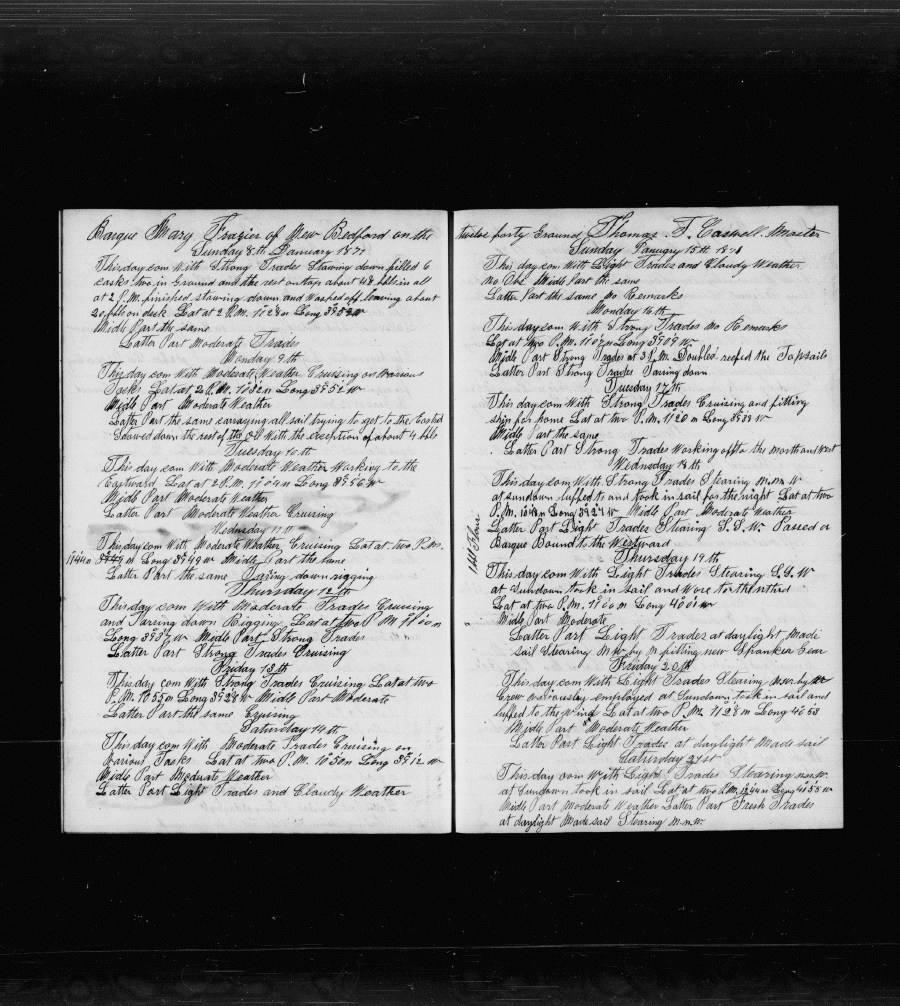 Barque Mary Frazier of New Bedford on the
Sunday 8th January 1871
This day com With Strong Trades Stawing down filled 6
casks two in Ground and the rest on top about 48 bbls in all
at 2 P.M. finished stawing down and Washed off leaving about
20 bbls on deck Lat at 2 P.M. 11°28 n Long 39°52 w
Midle Part the same
Latter Part Moderate Trades
Monday 9th
This day com With Moderate Weather Cruising on Various
Tacks Lat at 2 P.M. Long 39°52 w
Midle Part Moderate Weather
Latter Part the same carraying all sail trying to get to the Easterd
Stowed down the rest of the Oil With the exception of about 4 bbls
Tuesday 10th
This day com With Moderate Weather Working to the
Eastward Lat at 2 P.M. 11°04 n Long 39°56 w
Midle Part Moderate Weather
Latter Part Moderate Weather Cruising
Wednesday 11th
This day com With Moderate Weather Cruising Lat at two P.M.
11°44 n Long 39°49 w Midle Part the same
Latter Part the same Taring down rigging
Thursday 12th
This day com With Moderate Trades Cruising
and Taring down Rigging Lat at two P M 11°00 n
Long 39°37 w Midle Part Strong Trades
Latter Part Strong Trades Cruising
Friday 13th
This day com With Strong Trades Cruising Lat at two
P.M. 10°55 n Long 39°28 w Midle Part Moderate
Latter Part the same Cruising
Saturday 14th
This day com With Moderate Trades Cruising on
Various Tacks Lat at two P.M. 10°50 n Long 39°12 w
Midle Part Moderate Weather
Latter Part Light Trades and Cloudy Weather
twelve forty Ground Thomas. T. Caswell. Master
Sunday January 15th 1871
This day com With Light Trades and Cloudy Weather
no Obs Midle Part the same
Latter Part the same no Remarks
Monday 16th
This day com With Strong Trades no Remarks
Lat at two P.M. 11°07 n Long 39°09 w
Midle Part Strong Trades at 3 P.M. Doubled reefed the Topsails
Latter Part Strong Trades Taring down
Tuesday 17th
This day com With Strong Trades Cruising and fitting
ship for home Lat at two P.M. 11°20 n Long 39°39 w
Midle Part the same
Latter Part Strong Trades Working off to the north and West
Wednesday 18th
This day com With Strong Trades Stearing n.n. W
at sundown luffed to and took in sail for the night Lat at two
P.M. 12°48 n Long 39°27 w Midle Part Moderate Weather
Latter Part Light Trades Stearing S.S.W. Passed a
Barque Bound to the Westward
Thursday 19th
1 bbl Flour
This day com With Light Trades Stearing S.S.W
at Sundown took in sail and Wore to the
Lat at two P.M. 11°00 n Long 40°01 w
Midle Part Moderate
Latter Part Light Trades at daylight Made
sail Stearing N W. by N fitting new Spanker Gear
Friday 20th
This day com With Light Trades Stearing n.w. by W
Crew variously employed at Sundown took in sail and
luffed to the wind Lat at two P.M. 11°28 n Long 40°53
Midle Part Moderate Weather
Latter Part Light Trades at daylight Made sail
Saturday 21st
This day com With Light Trades Stearing n.n.W.
at Sundown took in sail Lat at two P.M. 12°44 n Long 40°55 w
Midle Part Moderate Weather Latter Part Fresh Trades
at daylight Made sail Stearing n.n.W.